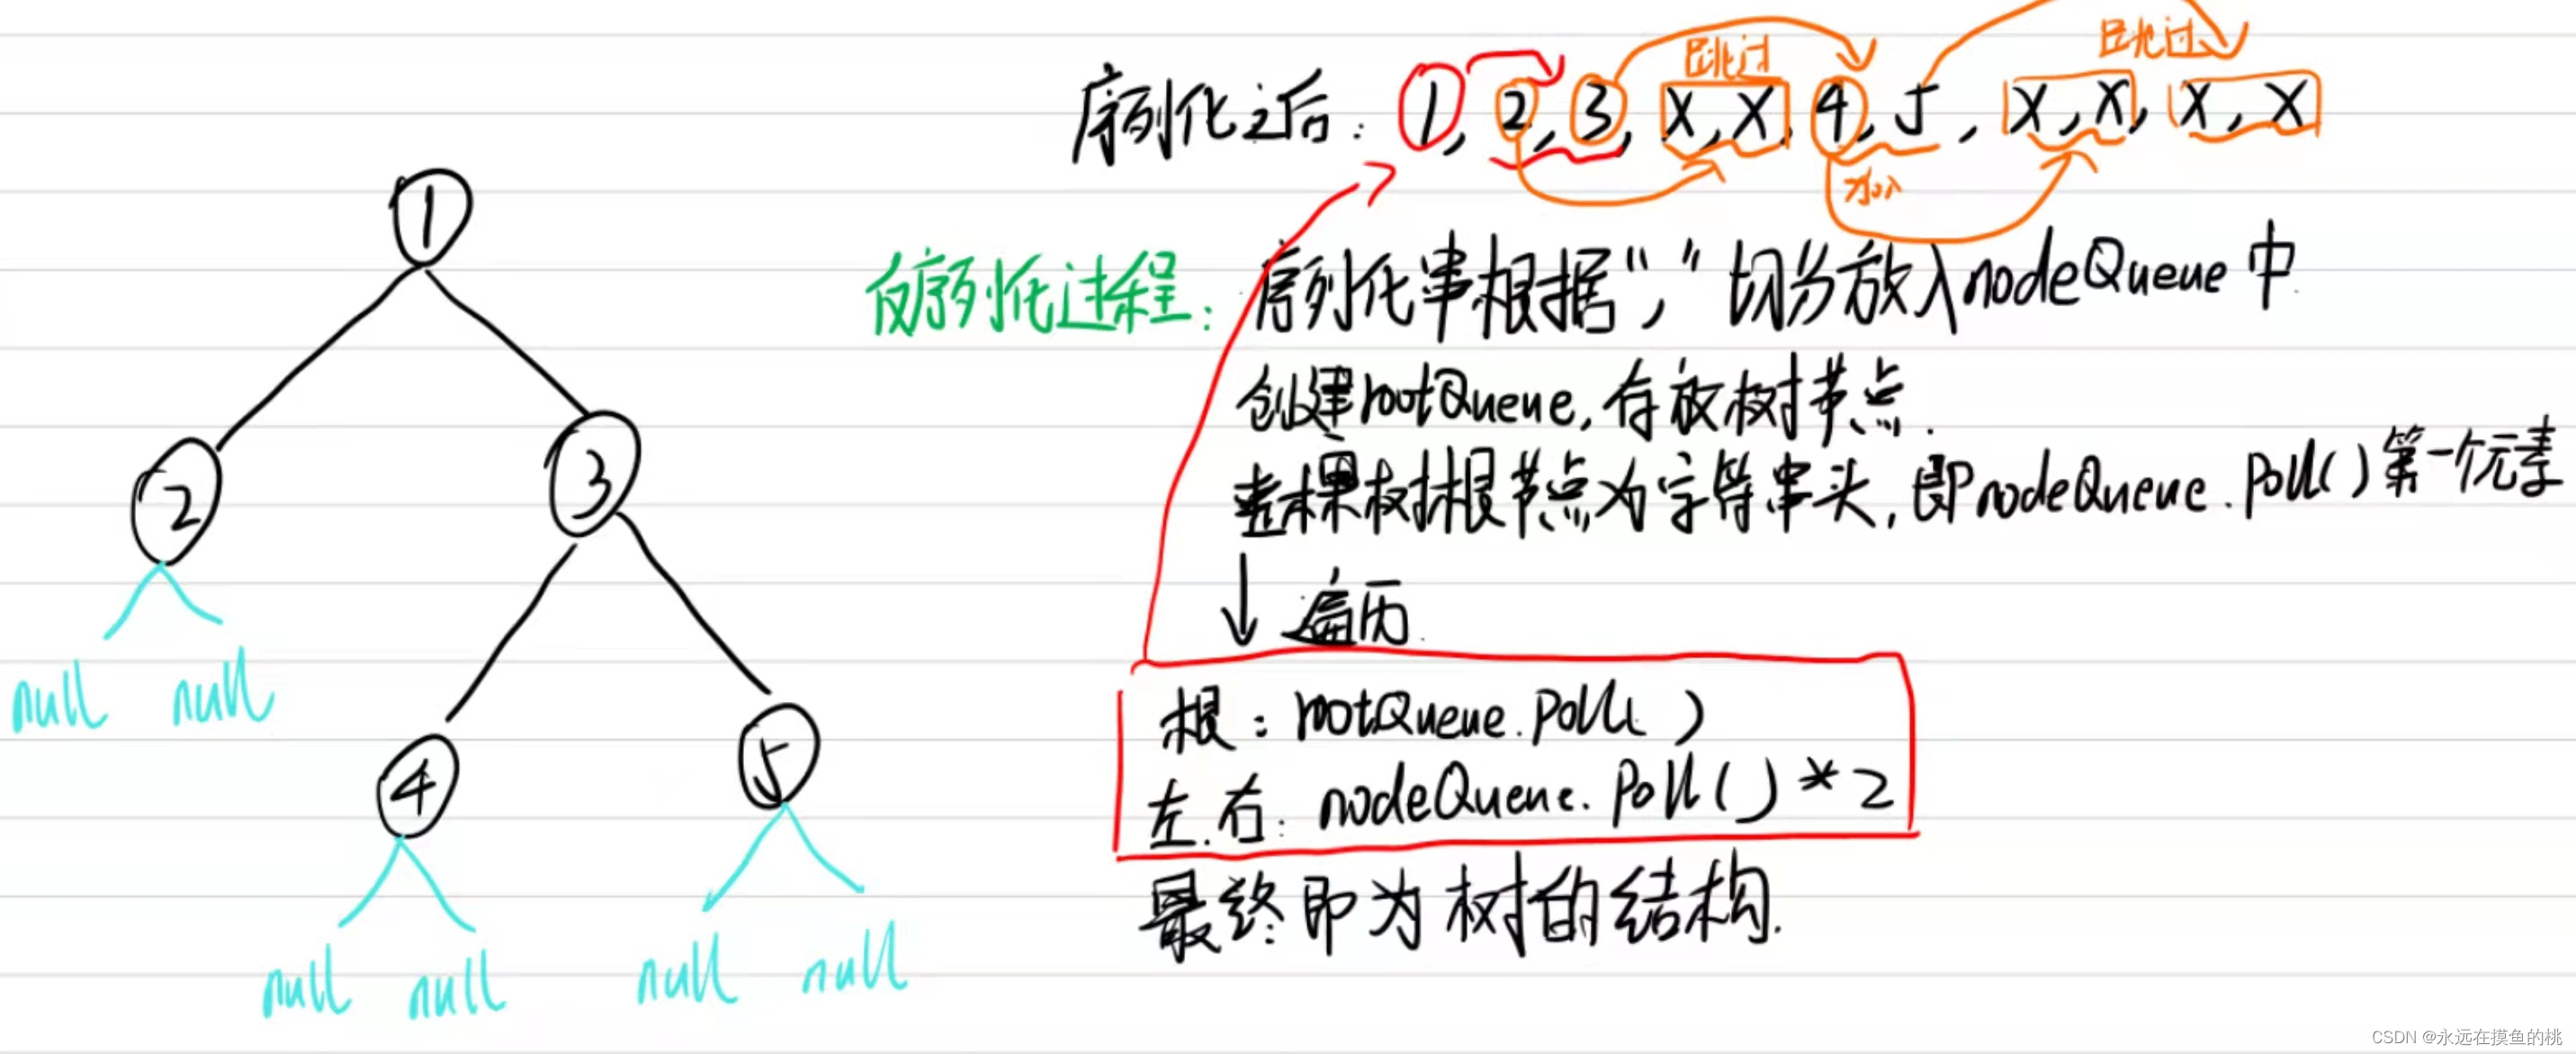 跳过
跳过
序列化之后: 1, 2, 3, X, X, 4, 5, X, X, X, X
加入
反序列化过程: 序列化串根据“,”切分放入nodeQueue中
创建rootQueue,存放树节点.
整棵树根节点为字符串头,即nodeQueue.poll()第一个元素
遍历
根: rootQueue.poll()
左.右: nodeQueue.poll()*2
最终即为树的结构.
1
2
3
null null
4
5
null null
null null
CSDN @永远在摸鱼的桃